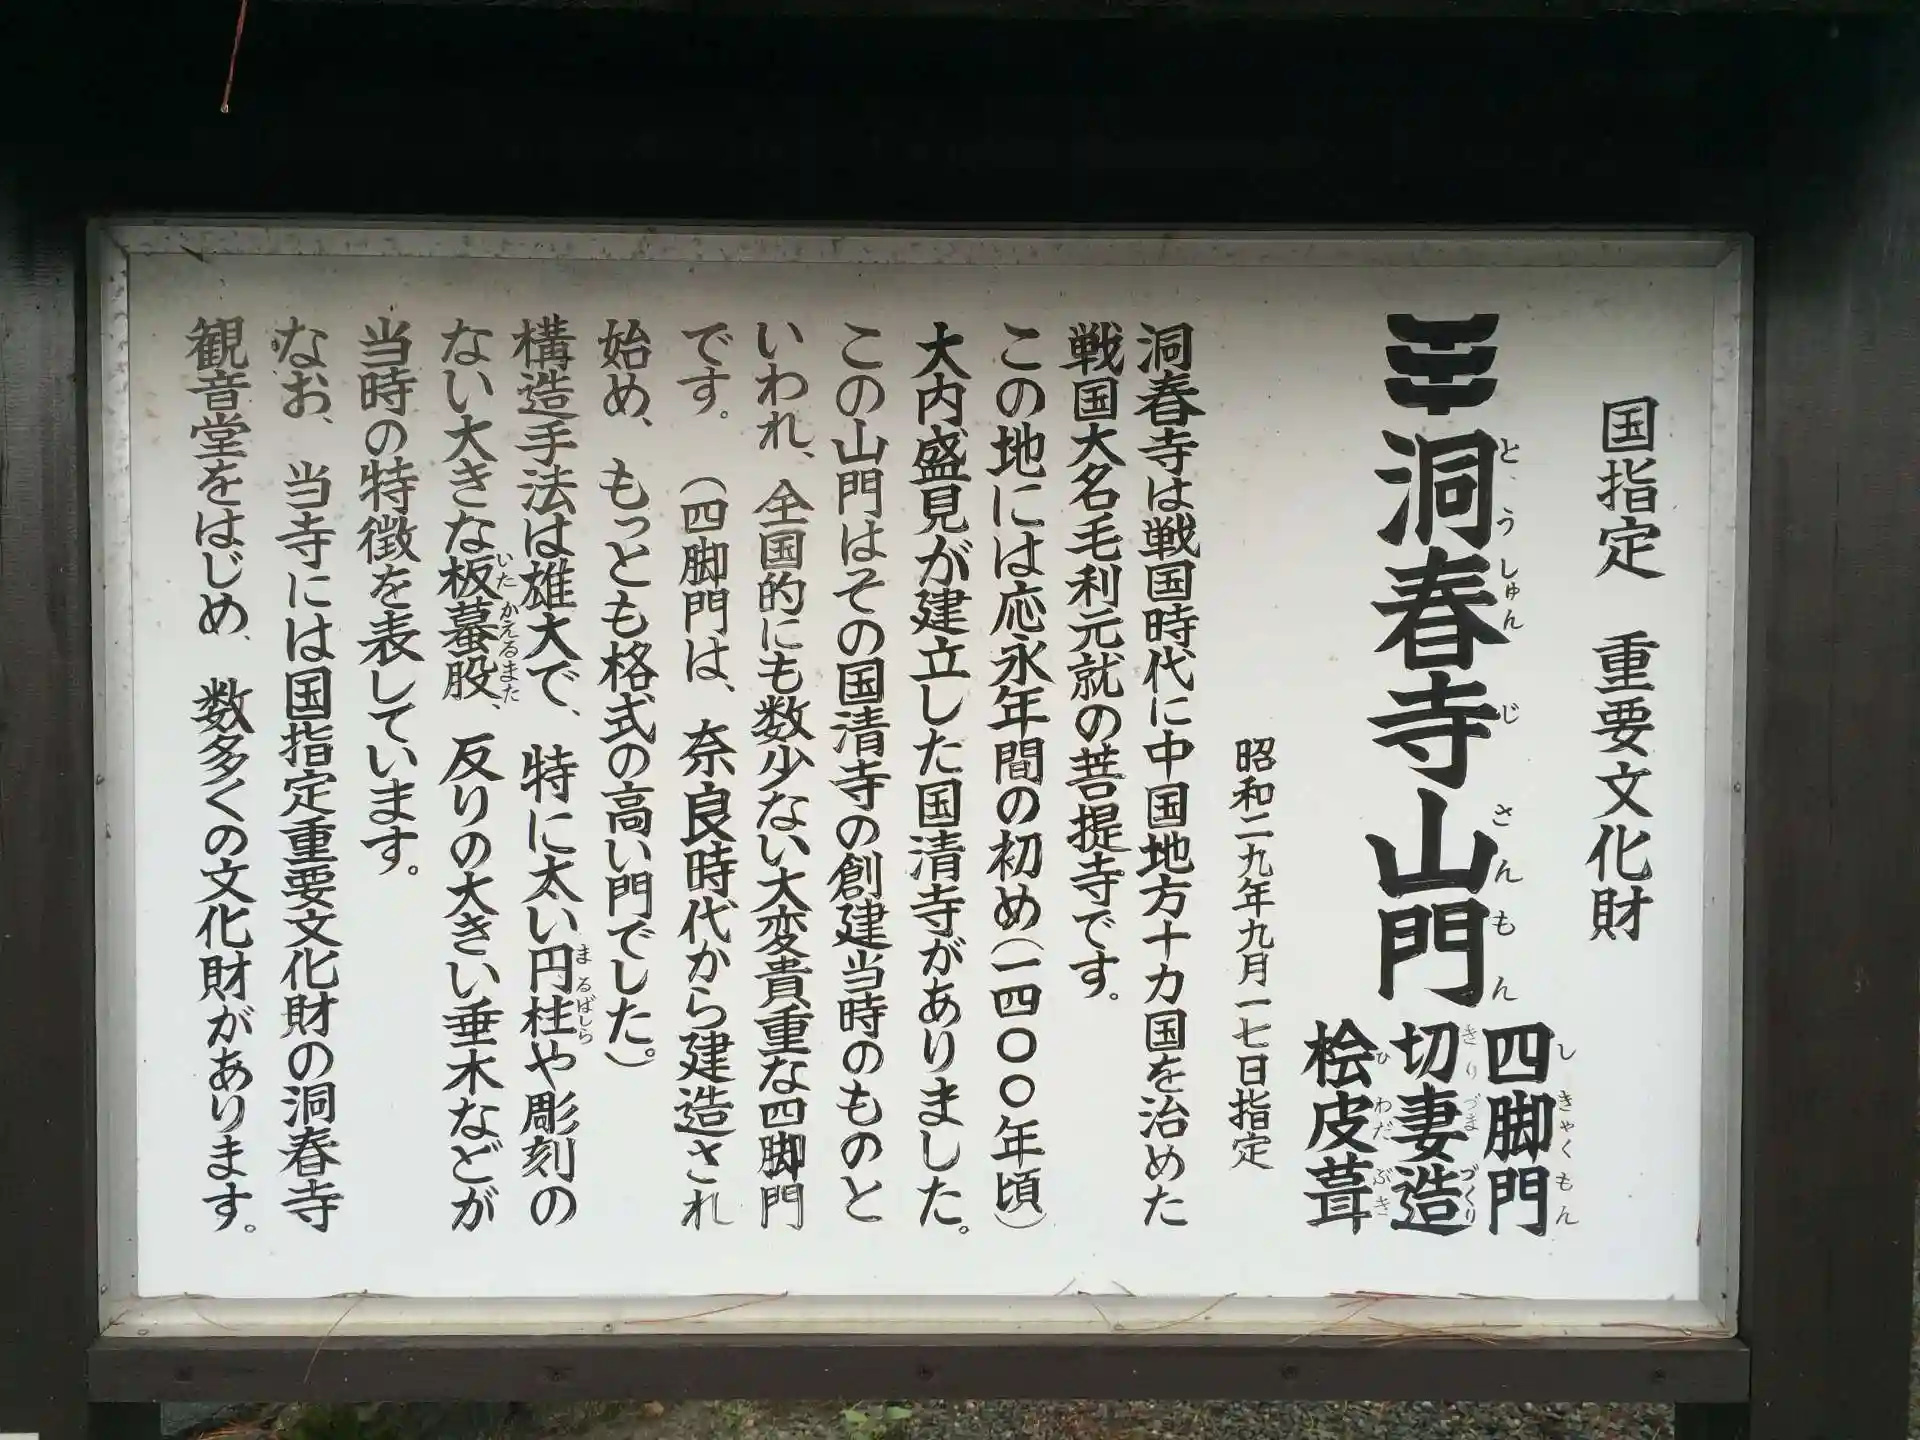 国指定　重要文化財
洞春寺山門
とうしゅんじさんもん
四脚門
しきゃくもん
切妻造
きりづまづくり
桧皮葺
ひわだぶき
昭和二九年九月一七日指定
洞春寺は戦国時代に中国地方十カ国を治めた
戦国大名毛利元就の菩提寺です。
この地には応永年間の初め（一四〇〇年頃）
大内盛見が建立した国清寺がありました。
この山門はその国清寺の創建当時のものと
いわれ、全国的にも数少ない大変貴重な四脚門
です。（四脚門は、奈良時代から建造され
始め、もっとも格式の高い門でした。）
構造手法は雄大で、特に太い円柱や彫刻の
まるばしら
ない大きな板蟇股、反りの大きい垂木などが
いたかえるまた
当時の特徴を表しています。
なお、当寺には国指定重要文化財の洞春寺
観音堂をはじめ、数多くの文化財があります。